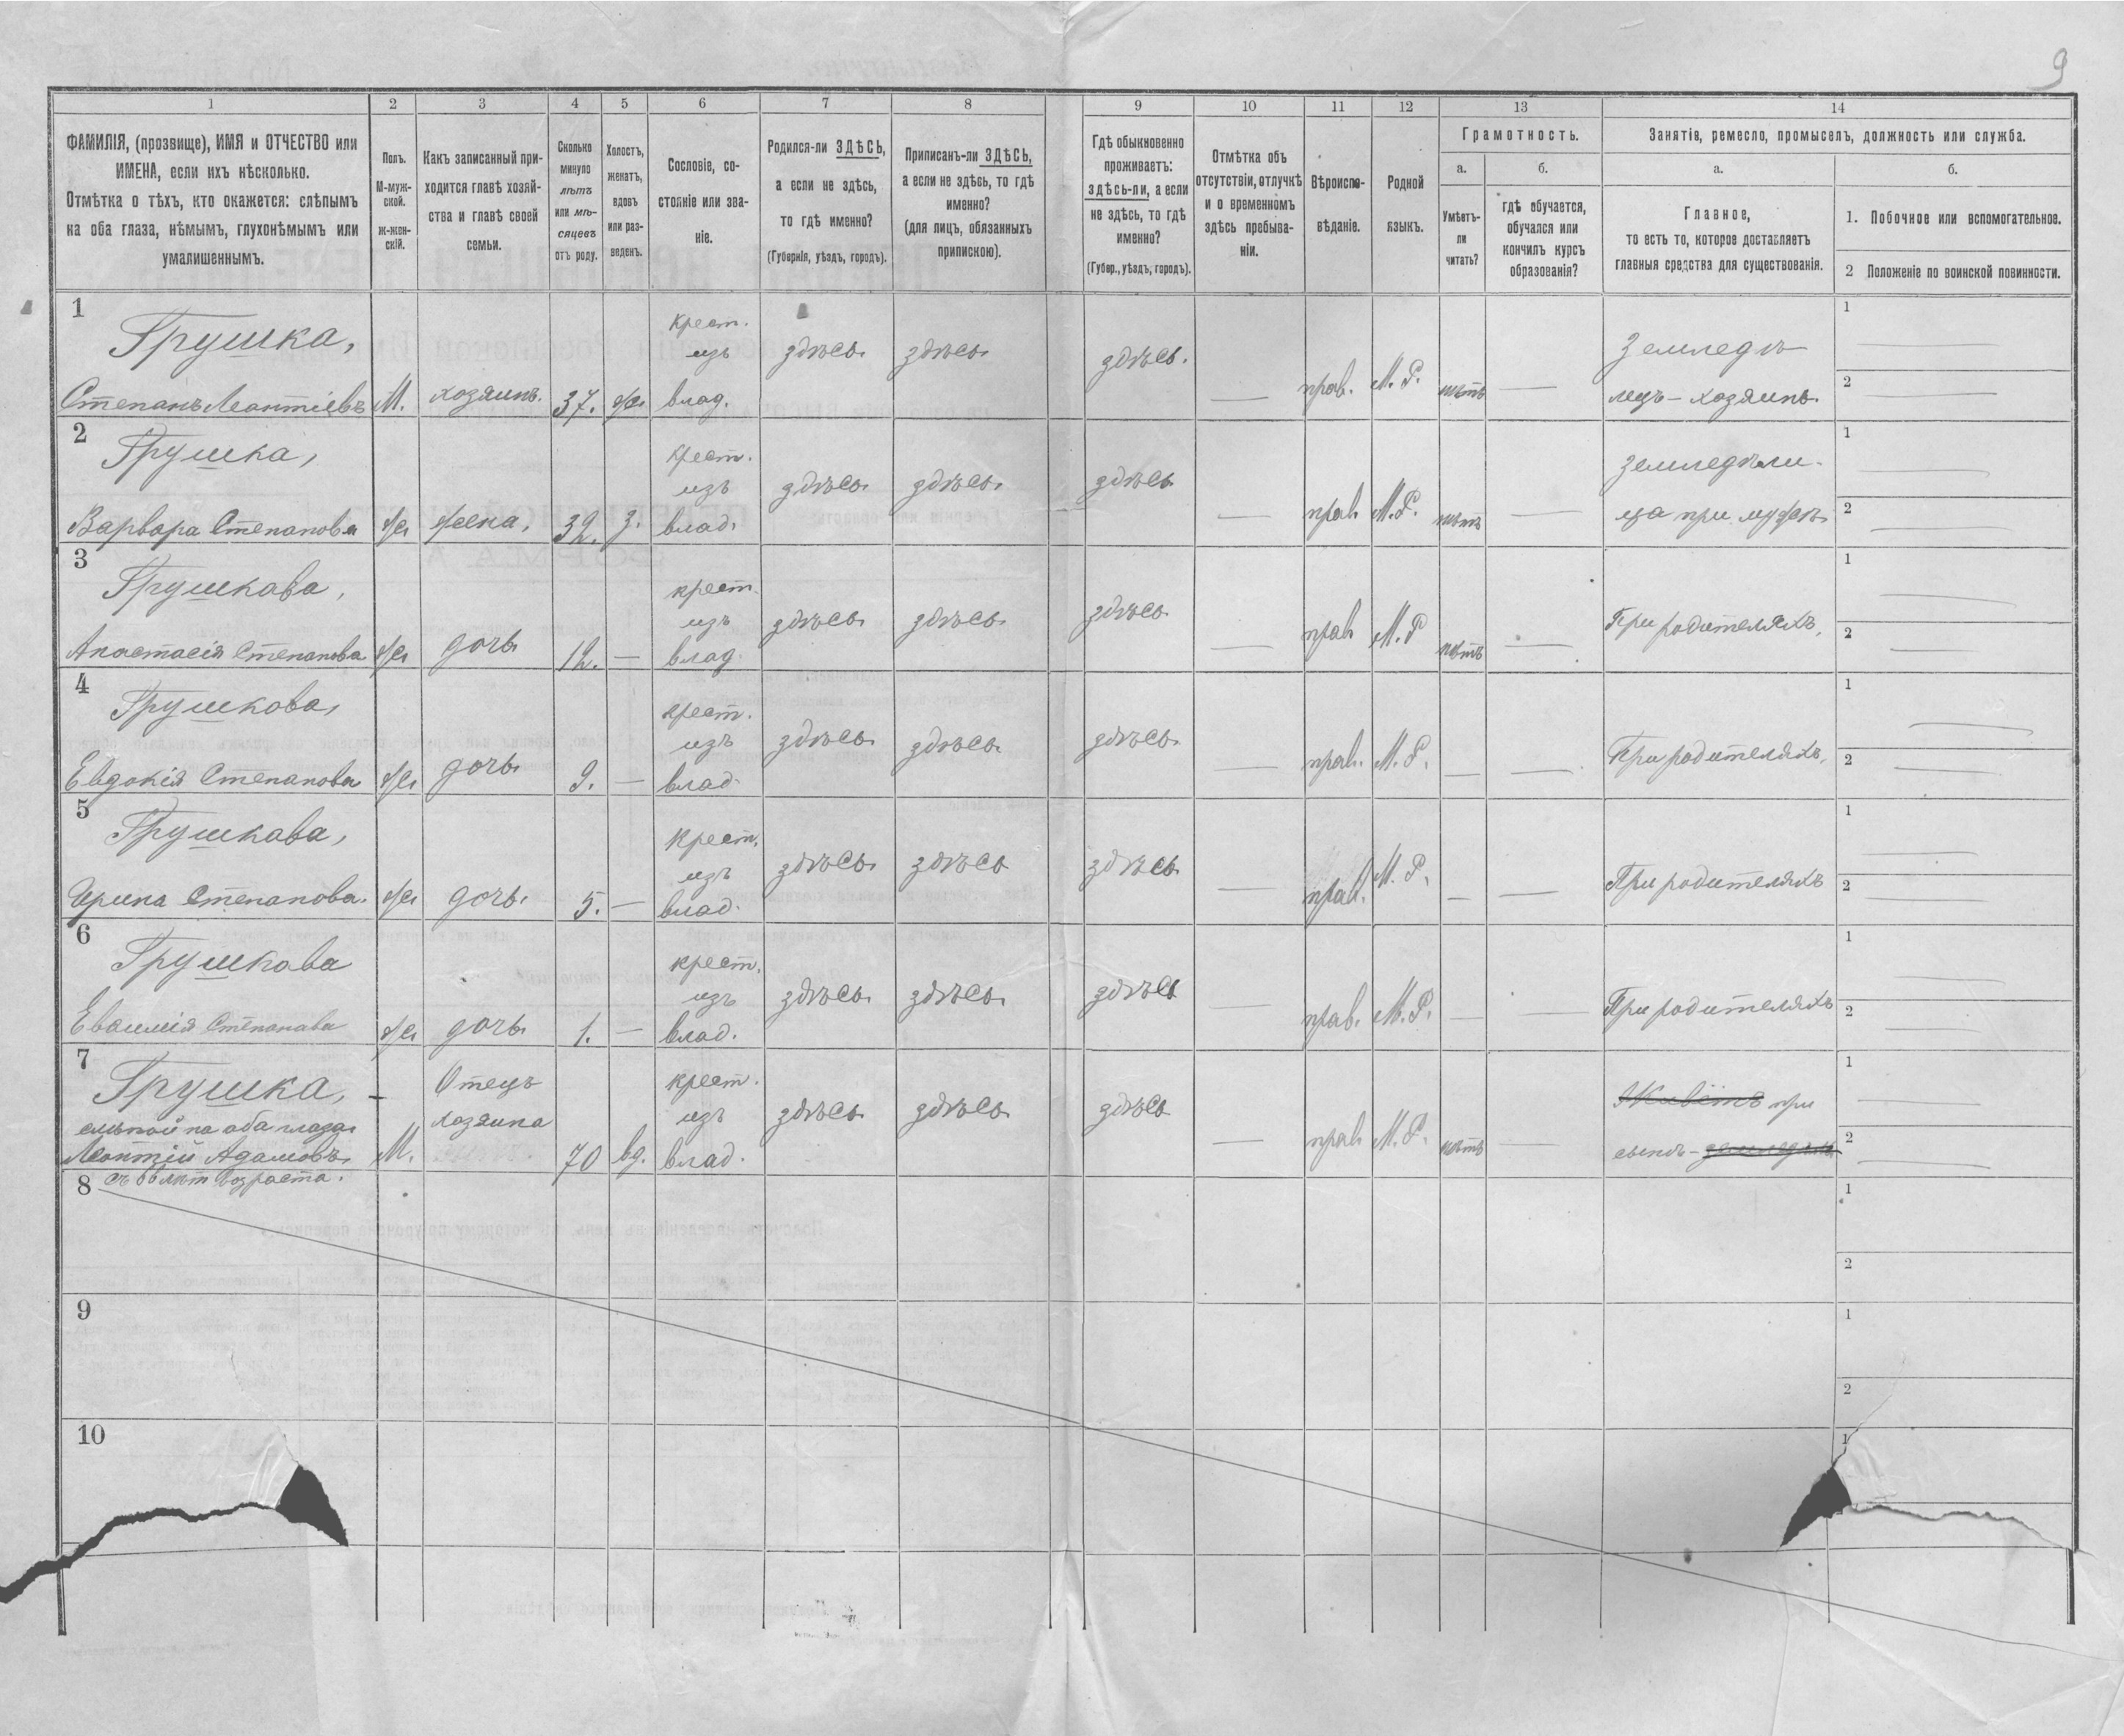 9
1 2 3 4 5 6 7 8 9 10 11 12 13 14
ФАМИЛІЯ, (прозвище), ИМЯ и ОТЧЕСТВО или
ИМЕНА, если ихъ нѣсколько.
Отмѣтка о тѣхъ, кто окажется: слѣпымъ
на оба глаза, нѣмымъ, глухонѣмымъ или
умалишеннымъ.
Полъ.
М-муж-
ской.
ж-жен-
скій.
Какъ записанный при-
ходится главѣ хозяй-
ства и главѣ своей
семьи.
Сколько
минуло
лѣтъ
или мѣ-
сяцевъ
отъ роду.
Холостъ,
женатъ,
вдовъ
или раз-
веденъ.
Сословіе, со-
стояніе или зва-
ніе.
Родился-ли ЗДѢСЬ,
а если не здѣсь,
то гдѣ именно?
(Губернія, уѣздъ, городъ).
Приписанъ-ли ЗДѢСЬ,
а если не здѣсь, то гдѣ
именно?
(для лицъ, обязанныхъ
припискою).
Гдѣ обыкновенно
проживаетъ:
здѣсь-ли, а если
не здѣсь, то гдѣ
именно?
(Губер., уѣздъ, городъ).
Отмѣтка объ
отсутствіи, отлучкѣ
и о временномъ
здѣсь пребыва-
ніи.
Вѣроиспо-
вѣданіе.
Родной
языкъ.
Грамотность.
а. б.
Умѣетъ-
ли
читать?
гдѣ обучается,
обучался или
кончилъ курсъ
образованія?
Занятіе, ремесло, промыселъ, должность или служба.
а. б.
Главное,
то есть то, которое доставляетъ
главныя средства для существованія.
1. Побочное или вспомогательное.
2 Положеніе по воинской повинности.
1
Грушка,
Степанъ Леонтіевъ
М.
хозяинъ.
37.
же
крест.
изъ
влад.
здѣсь
здѣсь
здѣсь.
—
прав.
М. Р.
нѣтъ
—
Земледѣ-
лецъ - хозяинъ.
1
2
2
Грушка,
Варвара Степанова
же
жена,
32.
з.
крест.
изъ
влад.
здѣсь
здѣсь
здѣсь
—
прав
М. Р.
нѣтъ
—
земледѣли-
ца при мужѣ
1
2
3
Грушкова,
Анастасія Степанова
же
дочь
12.
—
крест.
изъ
влад.
здѣсь
здѣсь
здѣсь
—
прав
М. Р
нѣтъ
—
При родителяхъ,
1
2
4
Грушкова,
Евдокія Степанова
же
дочь
9.
—
крест.
изъ
влад.
здѣсь
здѣсь
здѣсь
—
прав.
М. Р.
—
—
При родителяхъ,
1
2
5
Грушкова,
Ирина Степанова.
же
дочь
5.
—
крест.
изъ
влад.
здѣсь
здѣсь
здѣсь
—
прав.
М. Р.
—
—
При родителяхъ
1
2
6
Грушкова
Степанова
же
дочь
1.
—
крест.
изъ
влад.
здѣсь
здѣсь
здѣсь
—
прав.
М. Р.
—
—
При родителяхъ
1
2
7
Грушка,
слѣпой на оба глаза
Леонтій Адамовъ
съ 66 лѣт возраста.
М.
Отецъ
хозяина
70
вд.
крест.
изъ
влад.
здѣсь
здѣсь
здѣсь
—
прав
М. Р.
нѣтъ
—
Живётъ при
сынѣ -
1
2
8
1
2
9
1
2
10
1